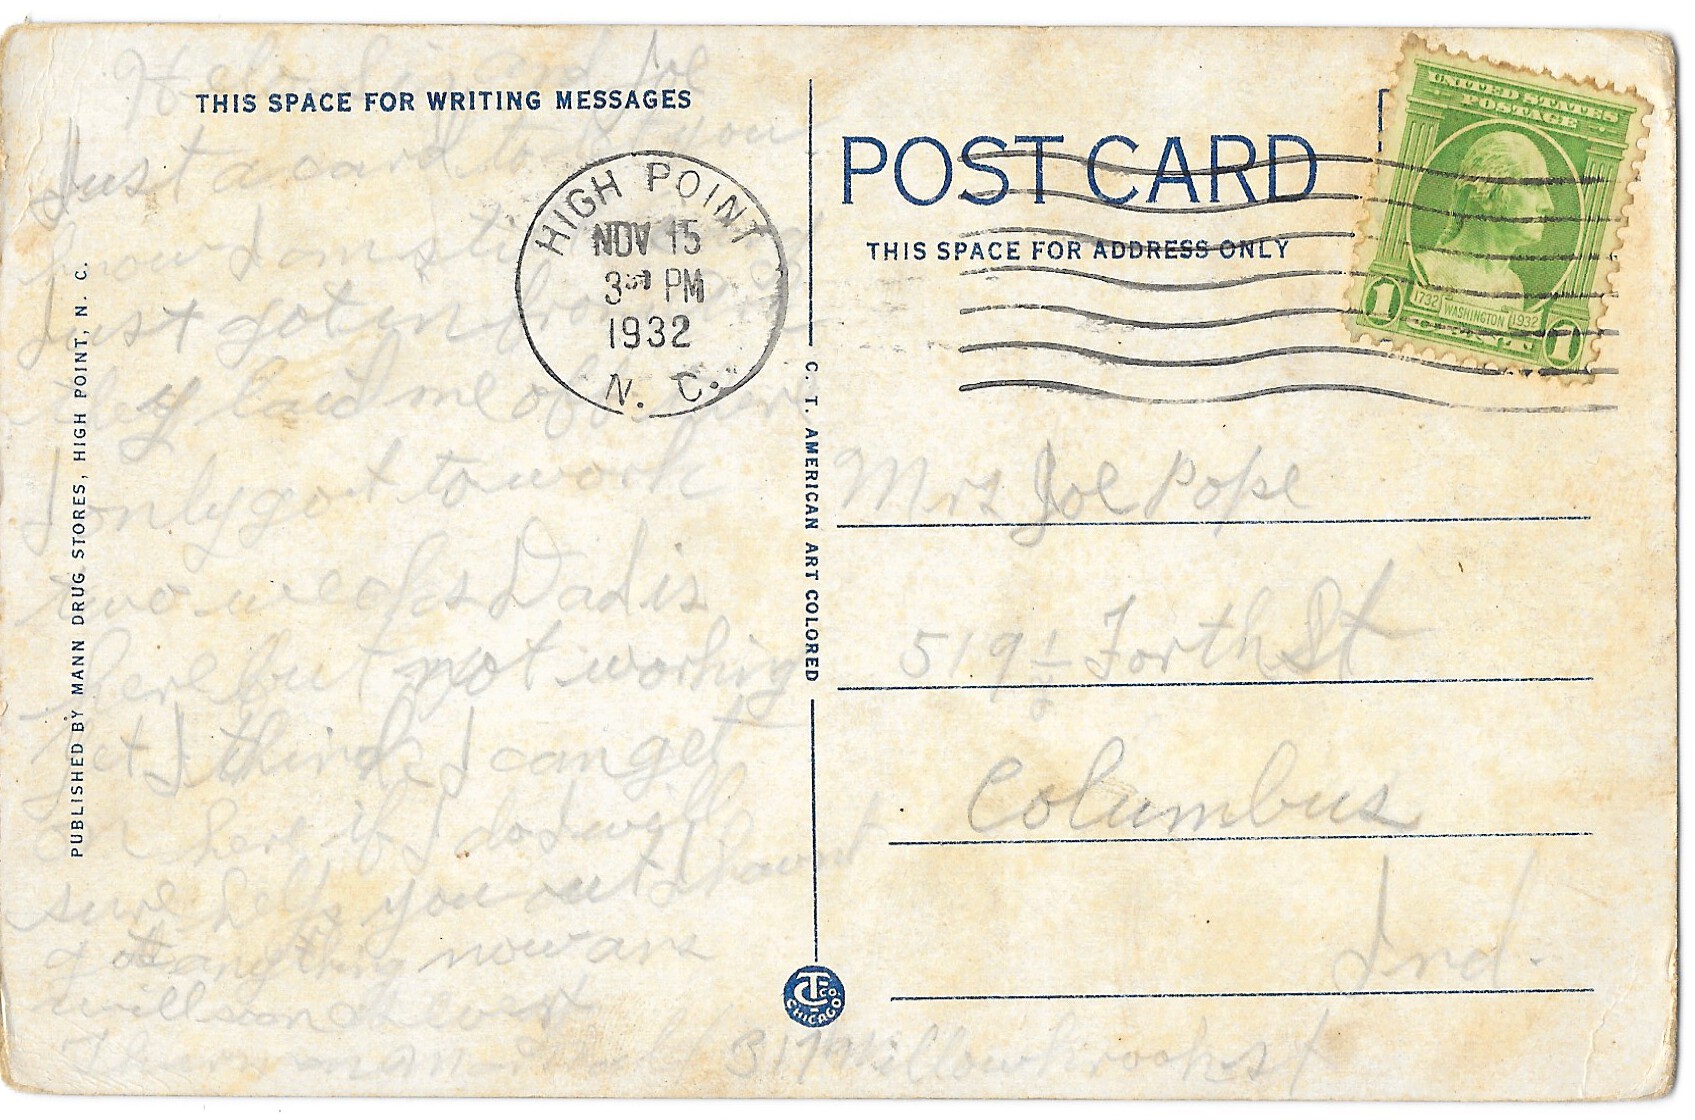 THIS SPACE FOR WRITING MESSAGES
and Joe
Just a card to let you
know I am still
Just got in from
they laid me off there
I only got to work
two weeks Dad is
here but not working
yet I think I can get
on here if I do I will
sure help you out I havent
got anything now ans
will soon
Thurman 317 Willowbrook st
PUBLISHED BY MANN DRUG STORES, HIGH POINT, N. C.
HIGH POINT
NOV 15
3 PM
1932
N. C.
C. T. AMERICAN ART COLORED
CT CO.
CHICAGO
POST CARD
THIS SPACE FOR ADDRESS ONLY
UNITED STATES
POSTAGE
1732 WASHINGTON 1932
1 1
Mrs Joe Pope
519 1/2 Forth St
Columbus
Ind.